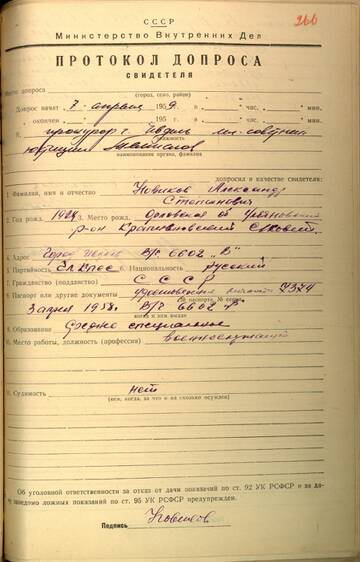 266
СССР
Министерство Внутренних Дел
ПРОТОКОЛ ДОПРОСА
СВИДЕТЕЛЯ
Место допроса
(город, село, район)
Допрос начат „ 7 “ апреля 1959 г. в час. мин.
„ окончен „ “ 195 г. в час. мин.
Я, прокурор г. Ивдель мл. советник
должность
юстиции
наименование органа, фамилия
допросил в качестве свидетеля:
1. Фамилия, имя и отчество Новиков Александр
Степанович
2. Год рожд. 1929 3. Место рожд. Орловская об
р-он
4. Адрес город Ивдель в/ч 6602 „В“
5. Партийность Чл. КПСС 6. Национальность русский
7. Гражданство (подданство) СССР
8. Паспорт или другие документы удостоверение личности
№ паспорта, № серии,
3 апреля 1958г. в/ч 6602
когда и кем выдан
9. Образование Средне специальное
10. Место работы, должность (профессия) военнослужащий
11. Судимость нет
(кем, когда, за что и на сколько осужден)
Об уголовной ответственности за отказ от дачи показаний по ст. 92 УК РСФСР и за да-
чу заведомо ложных показаний по ст. 95 УК РСФСР предупрежден.
Подпись Новиков